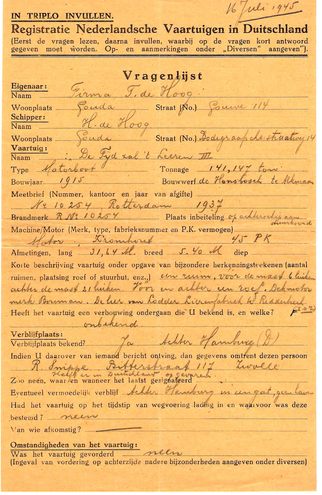 16 Juli 1945
IN TRIPLO INVULLEN.
Registratie Nederlandsche Vaartuigen in Duitschland
(Eerst de vragen lezen, daarna invullen, waarbij op de vragen kort antwoord
gegeven moet worden. Op- en aanmerkingen onder „Diversen” aangeven").
Vragenlijst
Eigenaar:
Naam : Firma T. de Hoog
Woonplaats Gouda Straat (No.) Gouwe 114
Schipper:
Naam : H. de Hoog
Woonplaats Gouda Straat (No.)
Vaartuig:
Naam : De Tyd zal 't Leeren III
Type Motorboot Tonnage 141,147 ton
Bouwjaar 1915 Bouwwerf
Meetbrief (Nummer, kantoor en jaar van afgifte)
No 10254 Rotterdam 1937
Brandmerk R No 10254 Plaats inbeiteling
Machine/Motor (Merk, type, fabrieksnummer en P.K. vermogen)
Motor Kromhout 45 PK
Afmetingen, lang 31,64 M. breed 5.40 M. diep
Korte beschrijving vaartuig onder opgave van bijzondere herkenningsteekenen (aantal
ruimen, plaatsing roef of stuurhut, enz.) een ruim, voor de mast 6 luiken
achter de mast luiken. Voor en achter een roef. Dekmotor
merk
Heeft het vaartuig een verbouwing ondergaan die U bekend is, en welke?
onbekend
Verblijfplaats:
Verblijfplaats bekend? Ja achter Hamburg (D)
Indien U daarover van iemand bericht ontving, dan gegevens omtrent dezen persoon
R. straat 117 Zwolle
Zoo neen, waar en wanneer het laatst gerigaleerd
Eventueel vermoedelijk verblijf achter Hamburg in
Had het vaartuig op het tijdstip van wegvoering lading in en waarvoor was deze
bestemd? neen
Van wie afkomstig?
Omstandigheden van het vaartuig:
Was het vaartuig gevorderd neen
(Ingeval van vordering op achterzijde nadere bijzonderheden aangeven onder diversen)